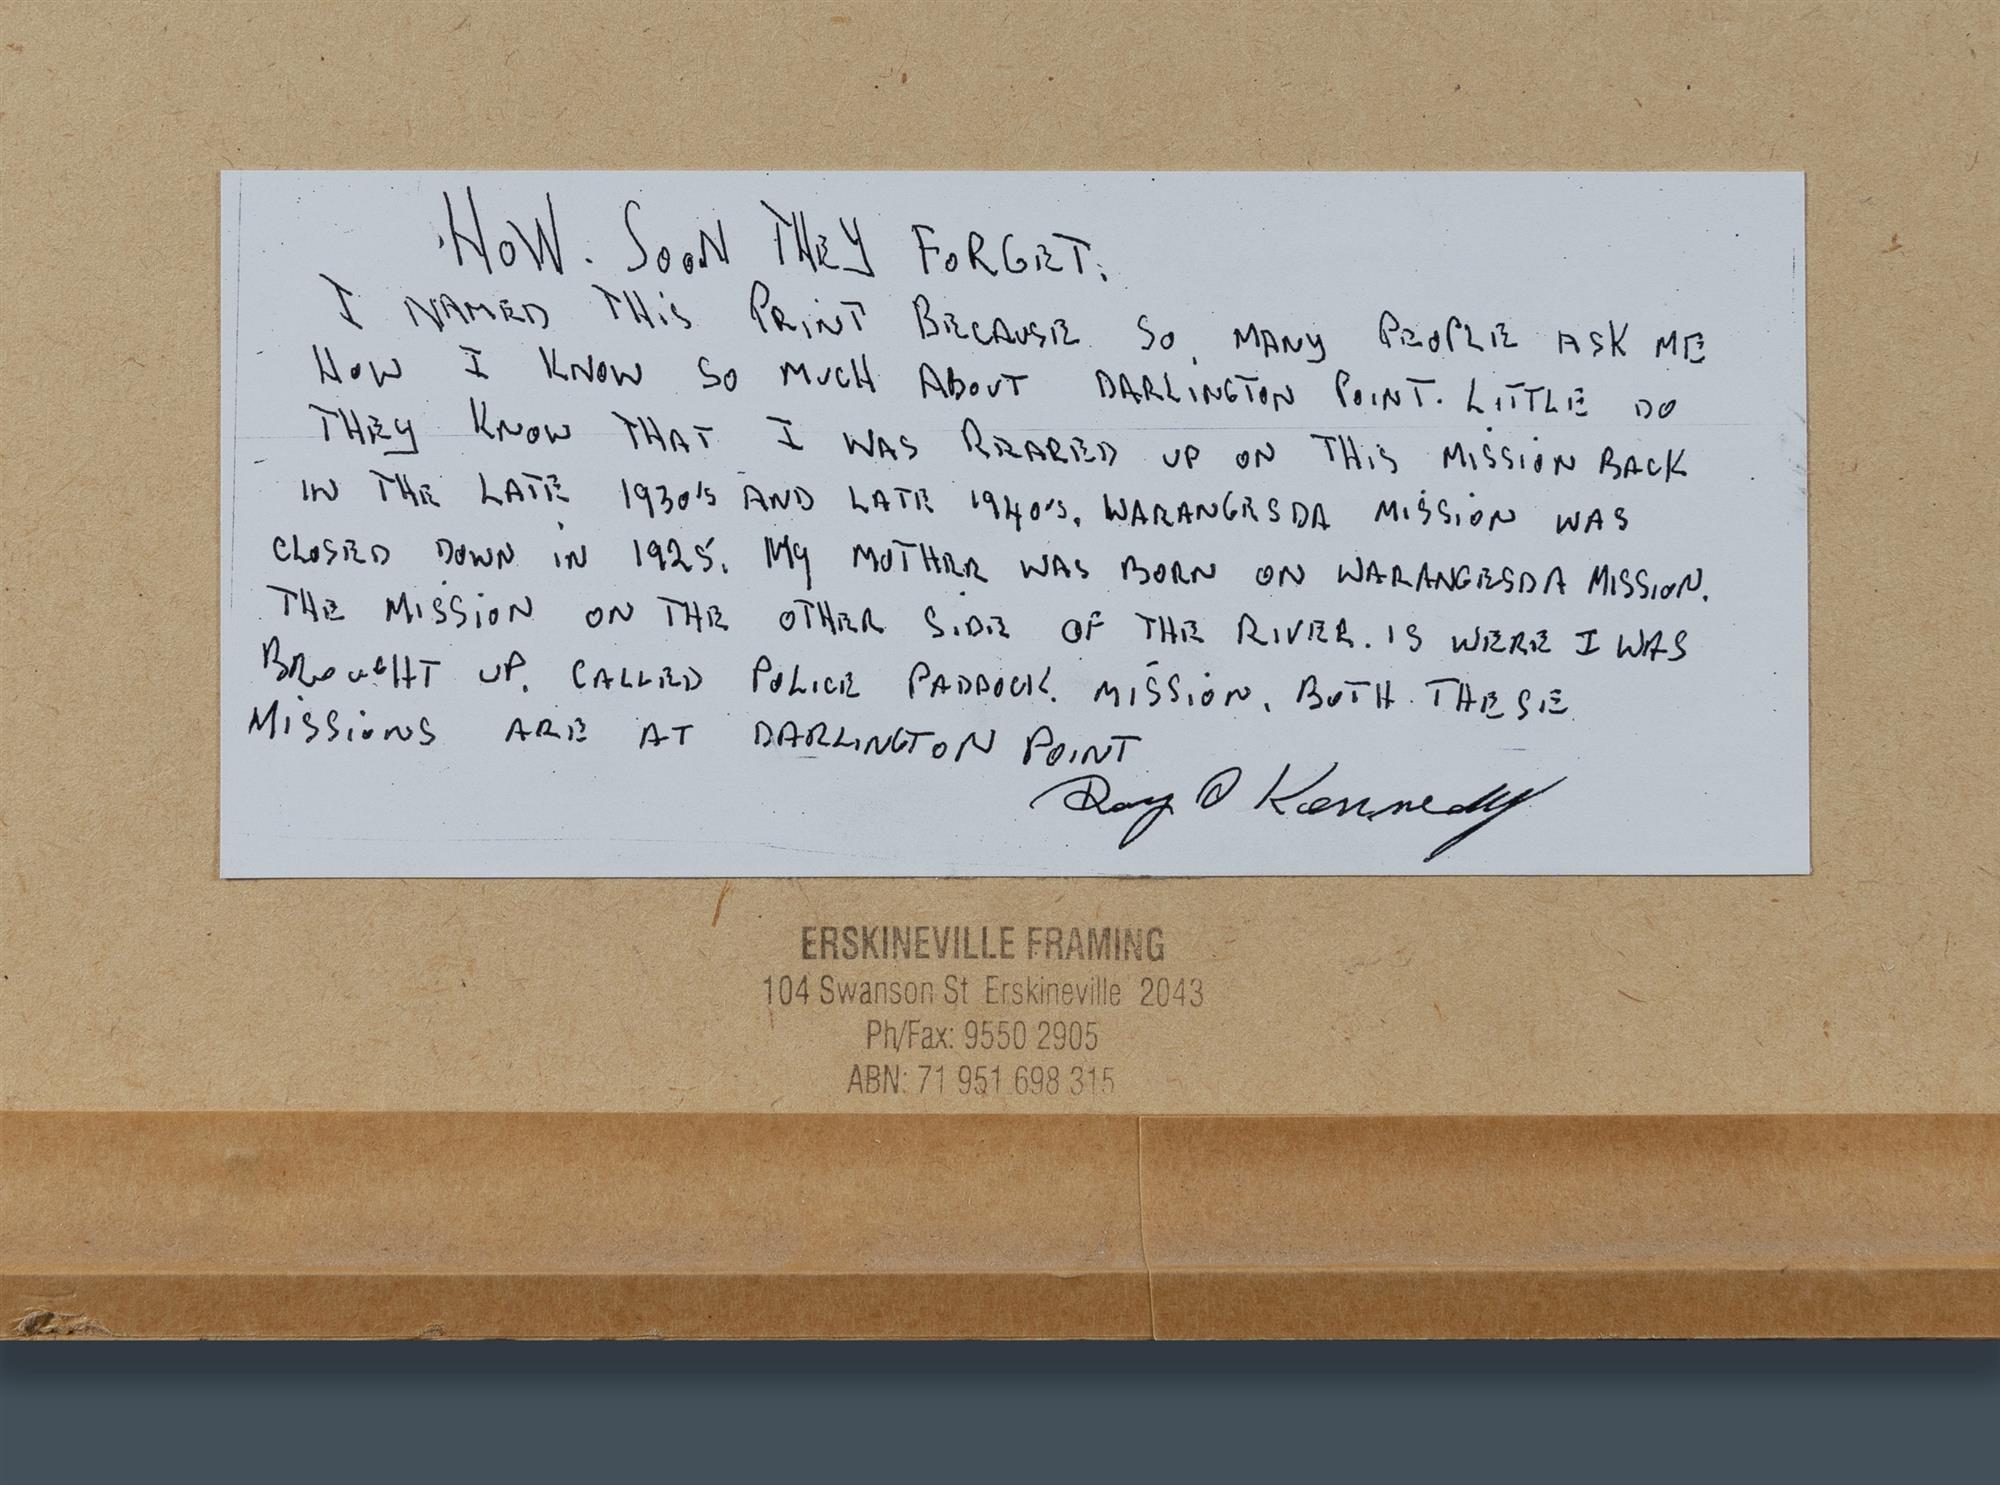 HOW. SOON THEY FORGET.
I NAMED THIS PRINT BECAUSE SO, MANY PEOPLE ASK ME
HOW I KNOW SO MUCH ABOUT DARLINGTON POINT. LITTLE DO
THEY KNOW THAT I WAS REARED UP ON THIS MISSION BACK
IN THE LATE 1930's AND LATE 1940's. WARANGESDA MISSION WAS
CLOSED DOWN IN 1925. MY MOTHER WAS BORN ON WARANGESDA MISSION.
THE MISSION ON THE OTHER SIDE OF THE RIVER. IS WERE I WAS
BROUGHT UP. CALLED POLICE PADDOCK. MISSION. BOTH THESE
MISSIONS ARE AT DARLINGTON POINT
Roy Kennedy
ERSKINEVILLE FRAMING
104 Swanson St Erskineville 2043
Ph/Fax: 9550 2905
ABN: 71 951 698 315